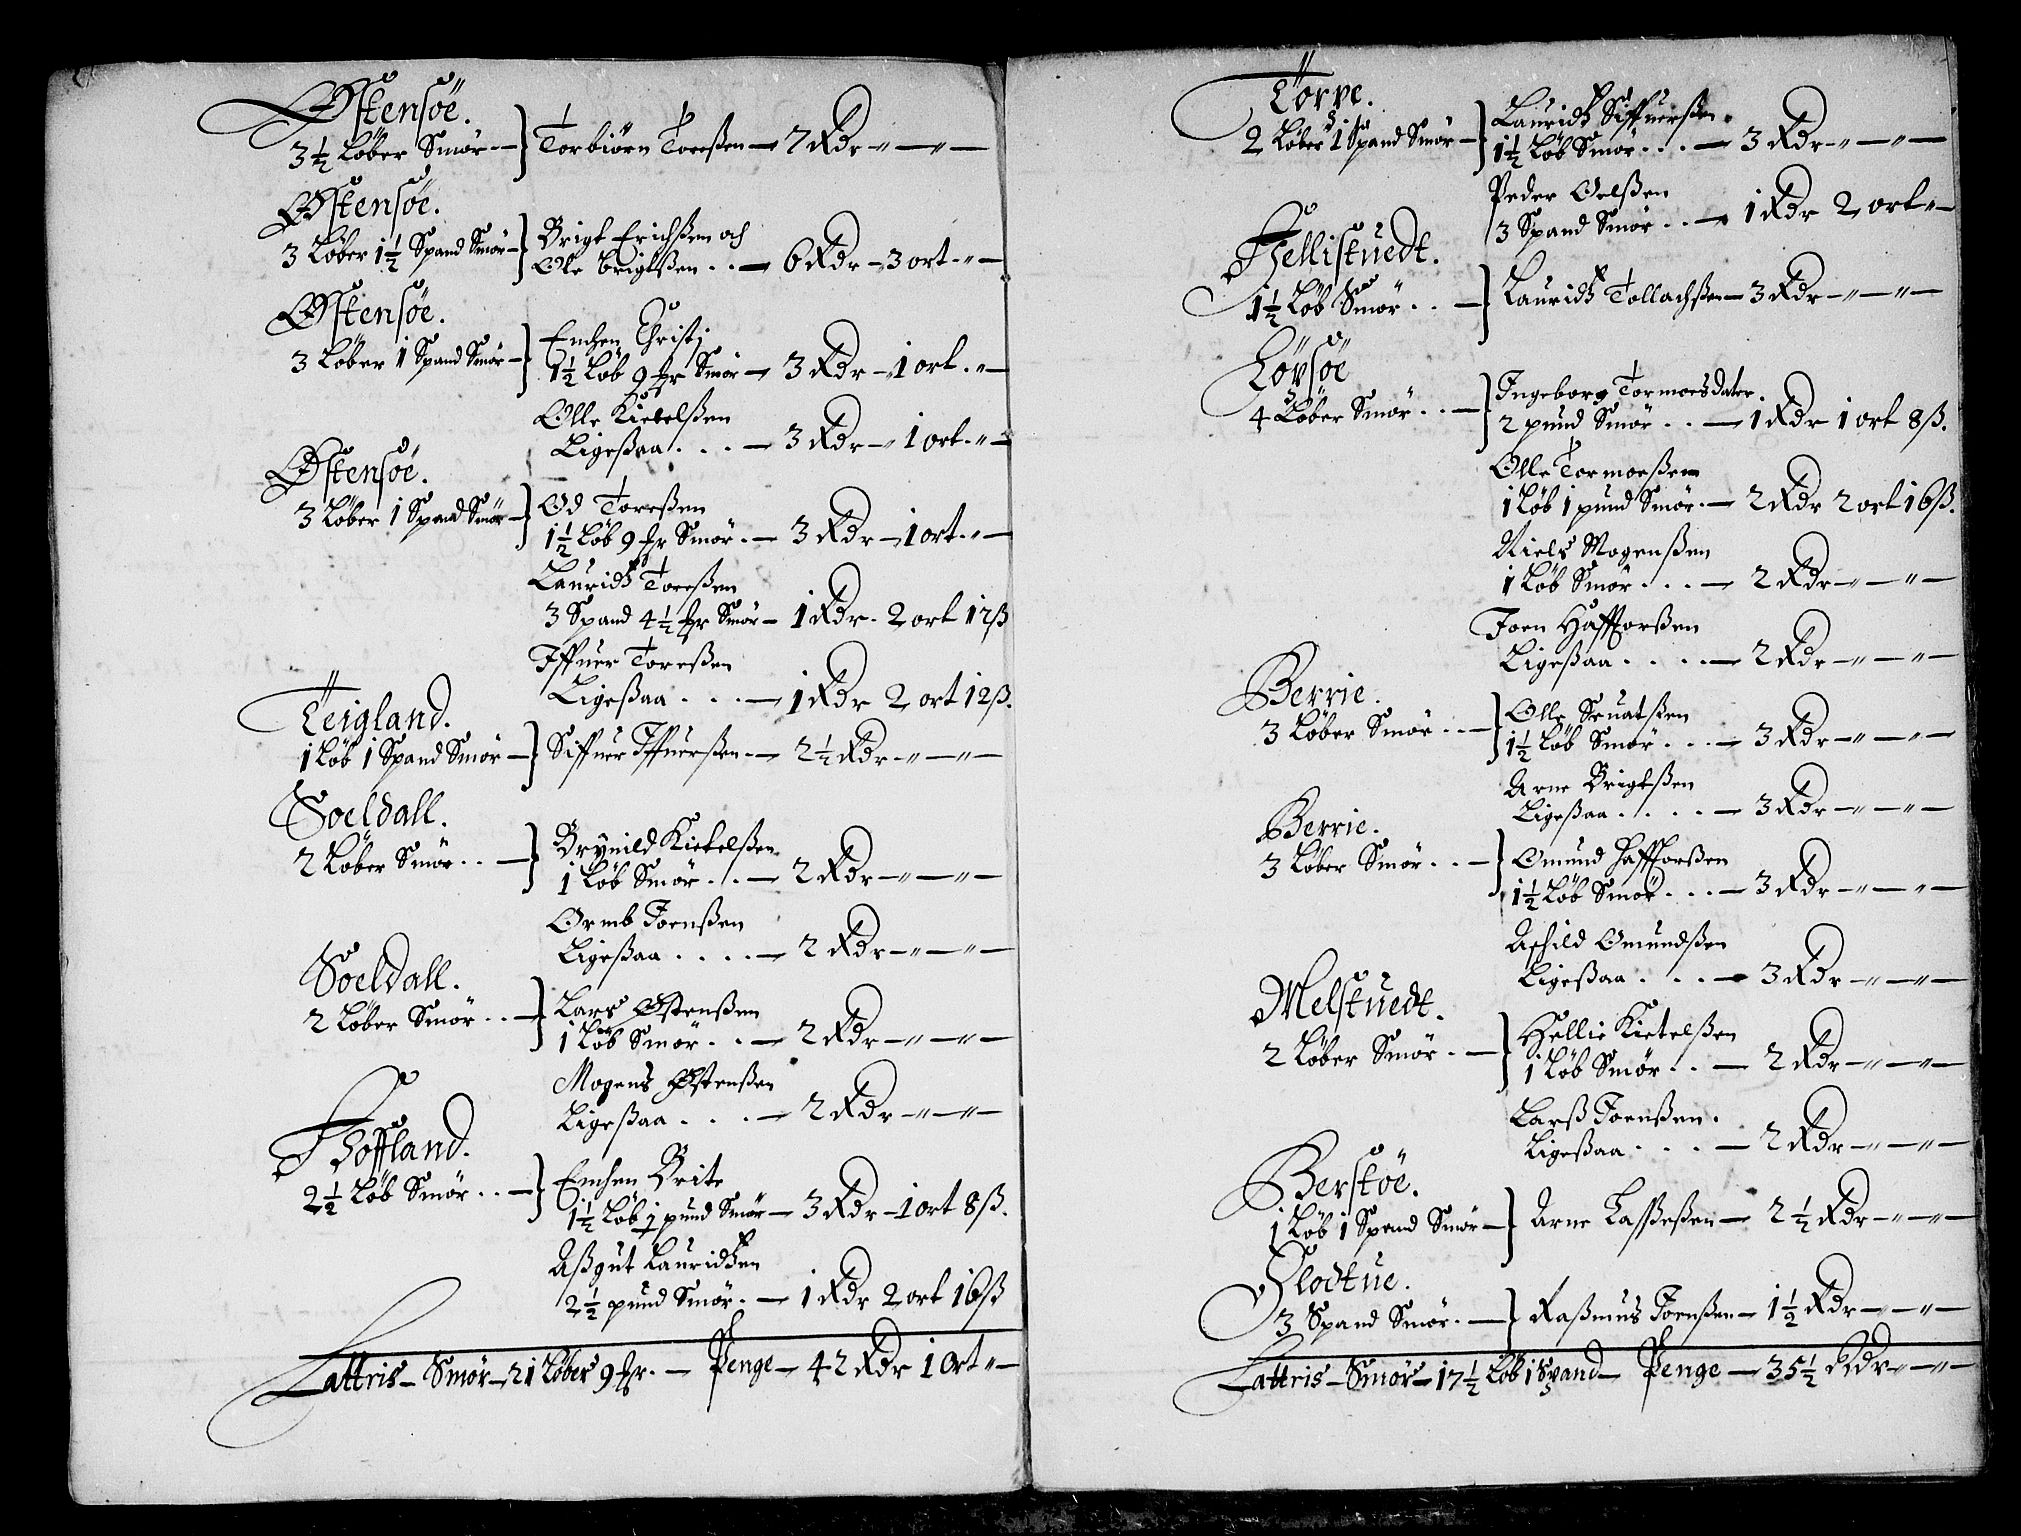 Østensøe.
3½ Løber Smör — } Torbiörn Toreßen — 7 Rdr — " — " —
Østensøe.
3 Løber 1½ Spand Smör — } Brigt Erichßen och
Ole Brigtßen . . — 6 Rdr — 3 ort — " —
Østensøe.
3 Løber 1 Spand Smör — } Enchen Christi
1½ Løb 9 Mr Smör — 3 Rdr — 1 ort — " —
Olle Kietelßen
Ligeßaa . . . — 3 Rdr — 1 ort — " —
Østensøe.
3 Løber 1 Spand Smör — } Od Toreßen
1½ Løb 9 Mr Smör — 3 Rdr — 1 ort — " —
Lauridtz Toreßen
3 Spand 4½ Mr Smör — 1 Rdr — 2 ort 12 ß
Iffuer Toreßen
Ligeßaa . . . — 1 Rdr 2 ort 12 ß.
Teigland.
1 Løb 1 Spand Smör — } Siffuer Iffuerßen — 2½ Rdr — " — " —
Soeldall.
2 Løber Smör . . — } Brynild Kietelßen
1 Løb Smör . . — 2 Rdr — " — " —
Ormb Joenßen
Ligeßaa . . . . — 2 Rdr — " — " —
Soeldall.
2 Løber Smör . . — } Lars Østenßen
1 Løb Smör . . — 2 Rdr — " — " —
Mogens Østenßen
Ligeßaa . . . — 2 Rdr — " — " —
Hoffland.
2½ Løb Smör . . — } Enchen Brite
1½ Løb 1 pund Smör — 3 Rdr — 1 ort 8 ß.
Aßgut Lauridtzen
2½ pund Smör . — 1 Rdr 2 ort 16 ß
Lattris — Smör — 21 Løber 9 Mr. — Penge — 42 Rdr 1 Ort " —
Torpe.
2 Løber 1 Spand Smör — } Lauridtz Siffuerßen
1½ Løb Smör . . . — 3 Rdr — " — " —
Peder Oelßen
3 Spand Smör . . — 1 Rdr 2 ort " —
Hellistuedt.
1½ Løb Smör . . — } Lauridtz Tollachßen — 3 Rdr — " — " —
Löpsøe
4 Løber Smör . . — } Ingeborg Tormoesdater.
2 pund Smör . . — 1 Rdr 1 ort 8 ß.
Olle Tormoeßen
1 Løb 1 pund Smör — 2 Rdr 2 ort 16 ß.
Niels Mogenßen
1 Løb Smör . . . — 2 Rdr — " — " —
Joen Haffforßen
Ligeßaa . . . . — 2 Rdr — " — " —
Berrie.
3 Løber Smör . . — } Olle Seuatßen
1½ Løb Smör . . . — 3 Rdr — " — " —
Arne Brigtßen
Ligeßaa . . . . — 3 Rdr — " — " —
Berrie.
3 Løber Smör . . — } Omund Haffforßen
1½ Løb Smör . . . — 3 Rdr — " — " —
Aschild Omundßen
Ligeßaa . . . — 3 Rdr — " — " —
Melstuedt.
2 Løber Smör . . — } Hellie Kietelßen
1 Løb Smör . . — 2 Rdr — " — " —
Larß Joenßen.
Ligeßaa . . . — 2 Rdr — " — " —
Berstøe.
1 Løb 1 Spend Smör — } Arne Laßeßen — 2½ Rdr — " — " —
Flodtue.
3 Spand Smör . — } Raßmus Joenßen — 1½ Rdr — " — " —
Lattris — Smör — 17½ Løb 1 Spand — Penge — 35½ Rdr — " — " —